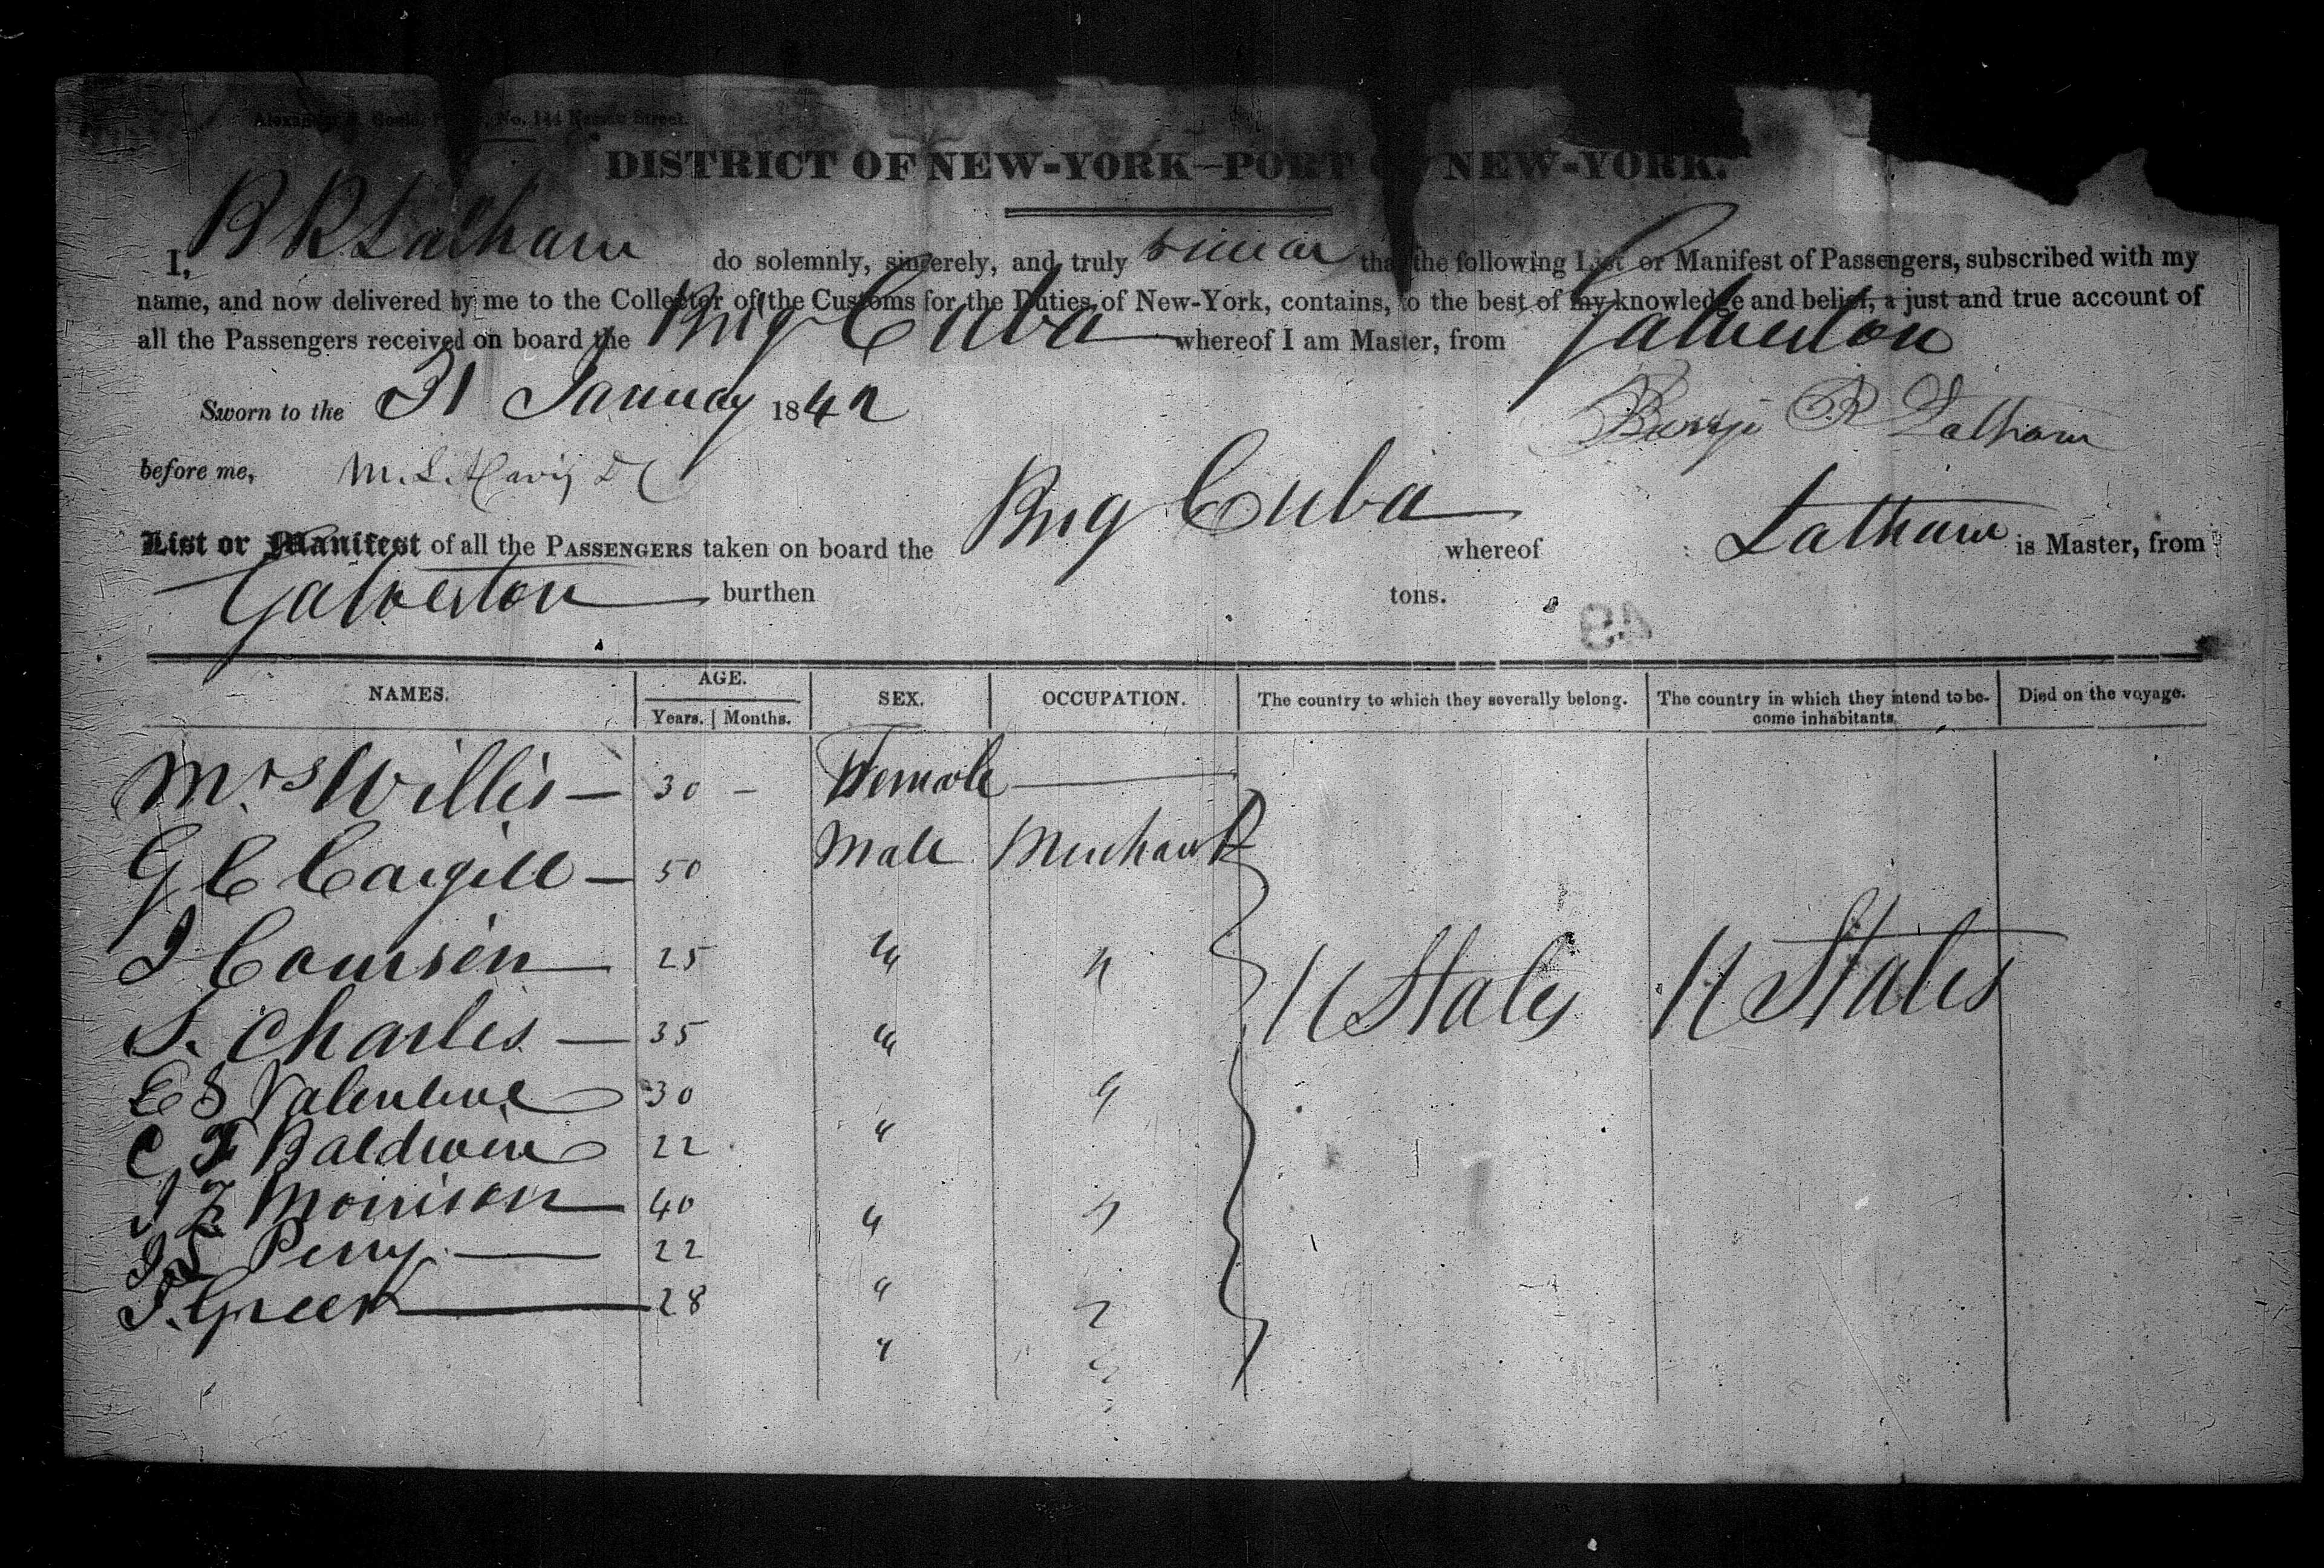 No. 144 Nassau Street.
DISTRICT OF NEW-YORK—PORT NEW-YORK.
I, B R Latham do solemnly, sincerely, and truly swear that the following List or Manifest of Passengers, subscribed with my
name, and now delivered by me to the Collector of the Customs for the Duties of New-York, contains, to the best of my knowledge and belief, a just and true account of
all the Passengers received on board the Brig Cuba whereof I am Master, from Galveston
Sworn to the 31 January 1842 R Latham
before me, M. L. Davis D C
List or Manifest of all the PASSENGERS taken on board the Brig Cuba whereof Latham is Master, from
Galveston burthen tons.
NAMES. AGE. SEX. OCCUPATION. The country to which they severally belong. The country in which they intend to be- Died on the voyage.
Years. Months. come inhabitants.
Mrs Willis — 30 — Female —
G C Cargill — 50 Male Merchant
J Coursen — 25 " "
S. Charles — 35 " U States U States
E S Valentine 30 "
C F Baldwin 22 "
J Z Morrison 40 " "
J S Perry — 22 "
J. Green — 28 "
" "